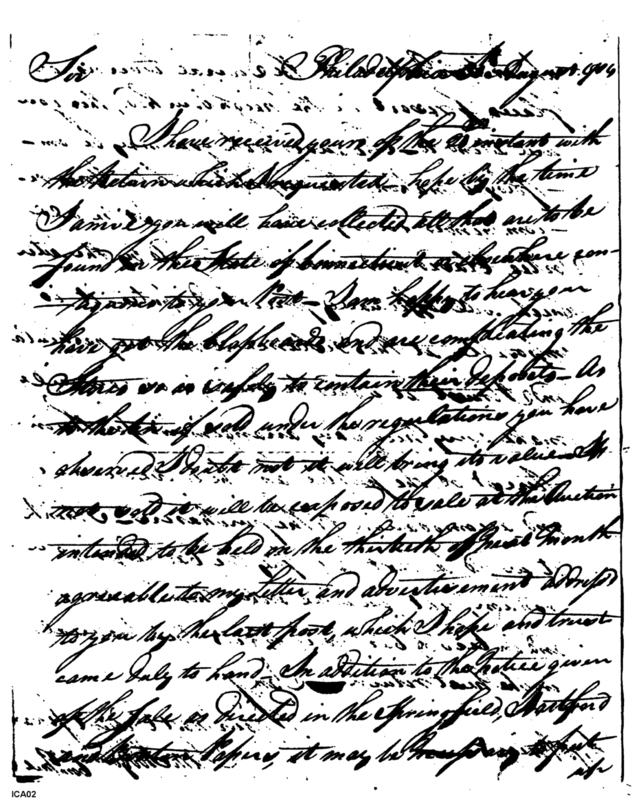 Sir Philadelphia August 1784
I have received yours of the instant with
the Return which I requested – hope by the time
I arrive you will have collected all that are to be
found in the State of Connecticut or elsewhere con-
tiguous to your Post – I am happy to hear you
have got the Clapboards and are compleating the
Stores so as safely to contain their deposits – As
to the tin if sold under the regulations you have
observed I doubt not it will bring its value – If
not sold it will be exposed to sale at the Auction
intended to be held on the thirtieth of next Month
agreeable to my Letter and advertisement address'd
to you by the last post, which I hope and trust
came duly to hand. In addition to the notice given
of the Sale as directed in the Springfield, Hartford
and Papers, it may be necessary to put
up
ICA02